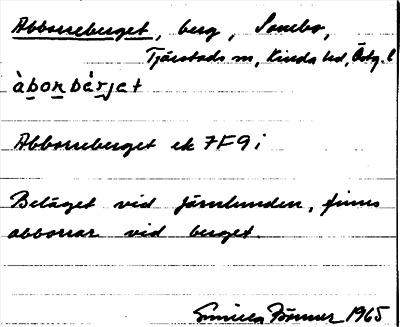 Abborreberget, berg, Sonebo,
Tjärstads sn, Kinda hd, Östg. l
àbor̲bær̲jat
Abborreberget ek 7F9i
Beläget vid Järnlunden, finns
abborrar vid berget.
Gunilla 1965